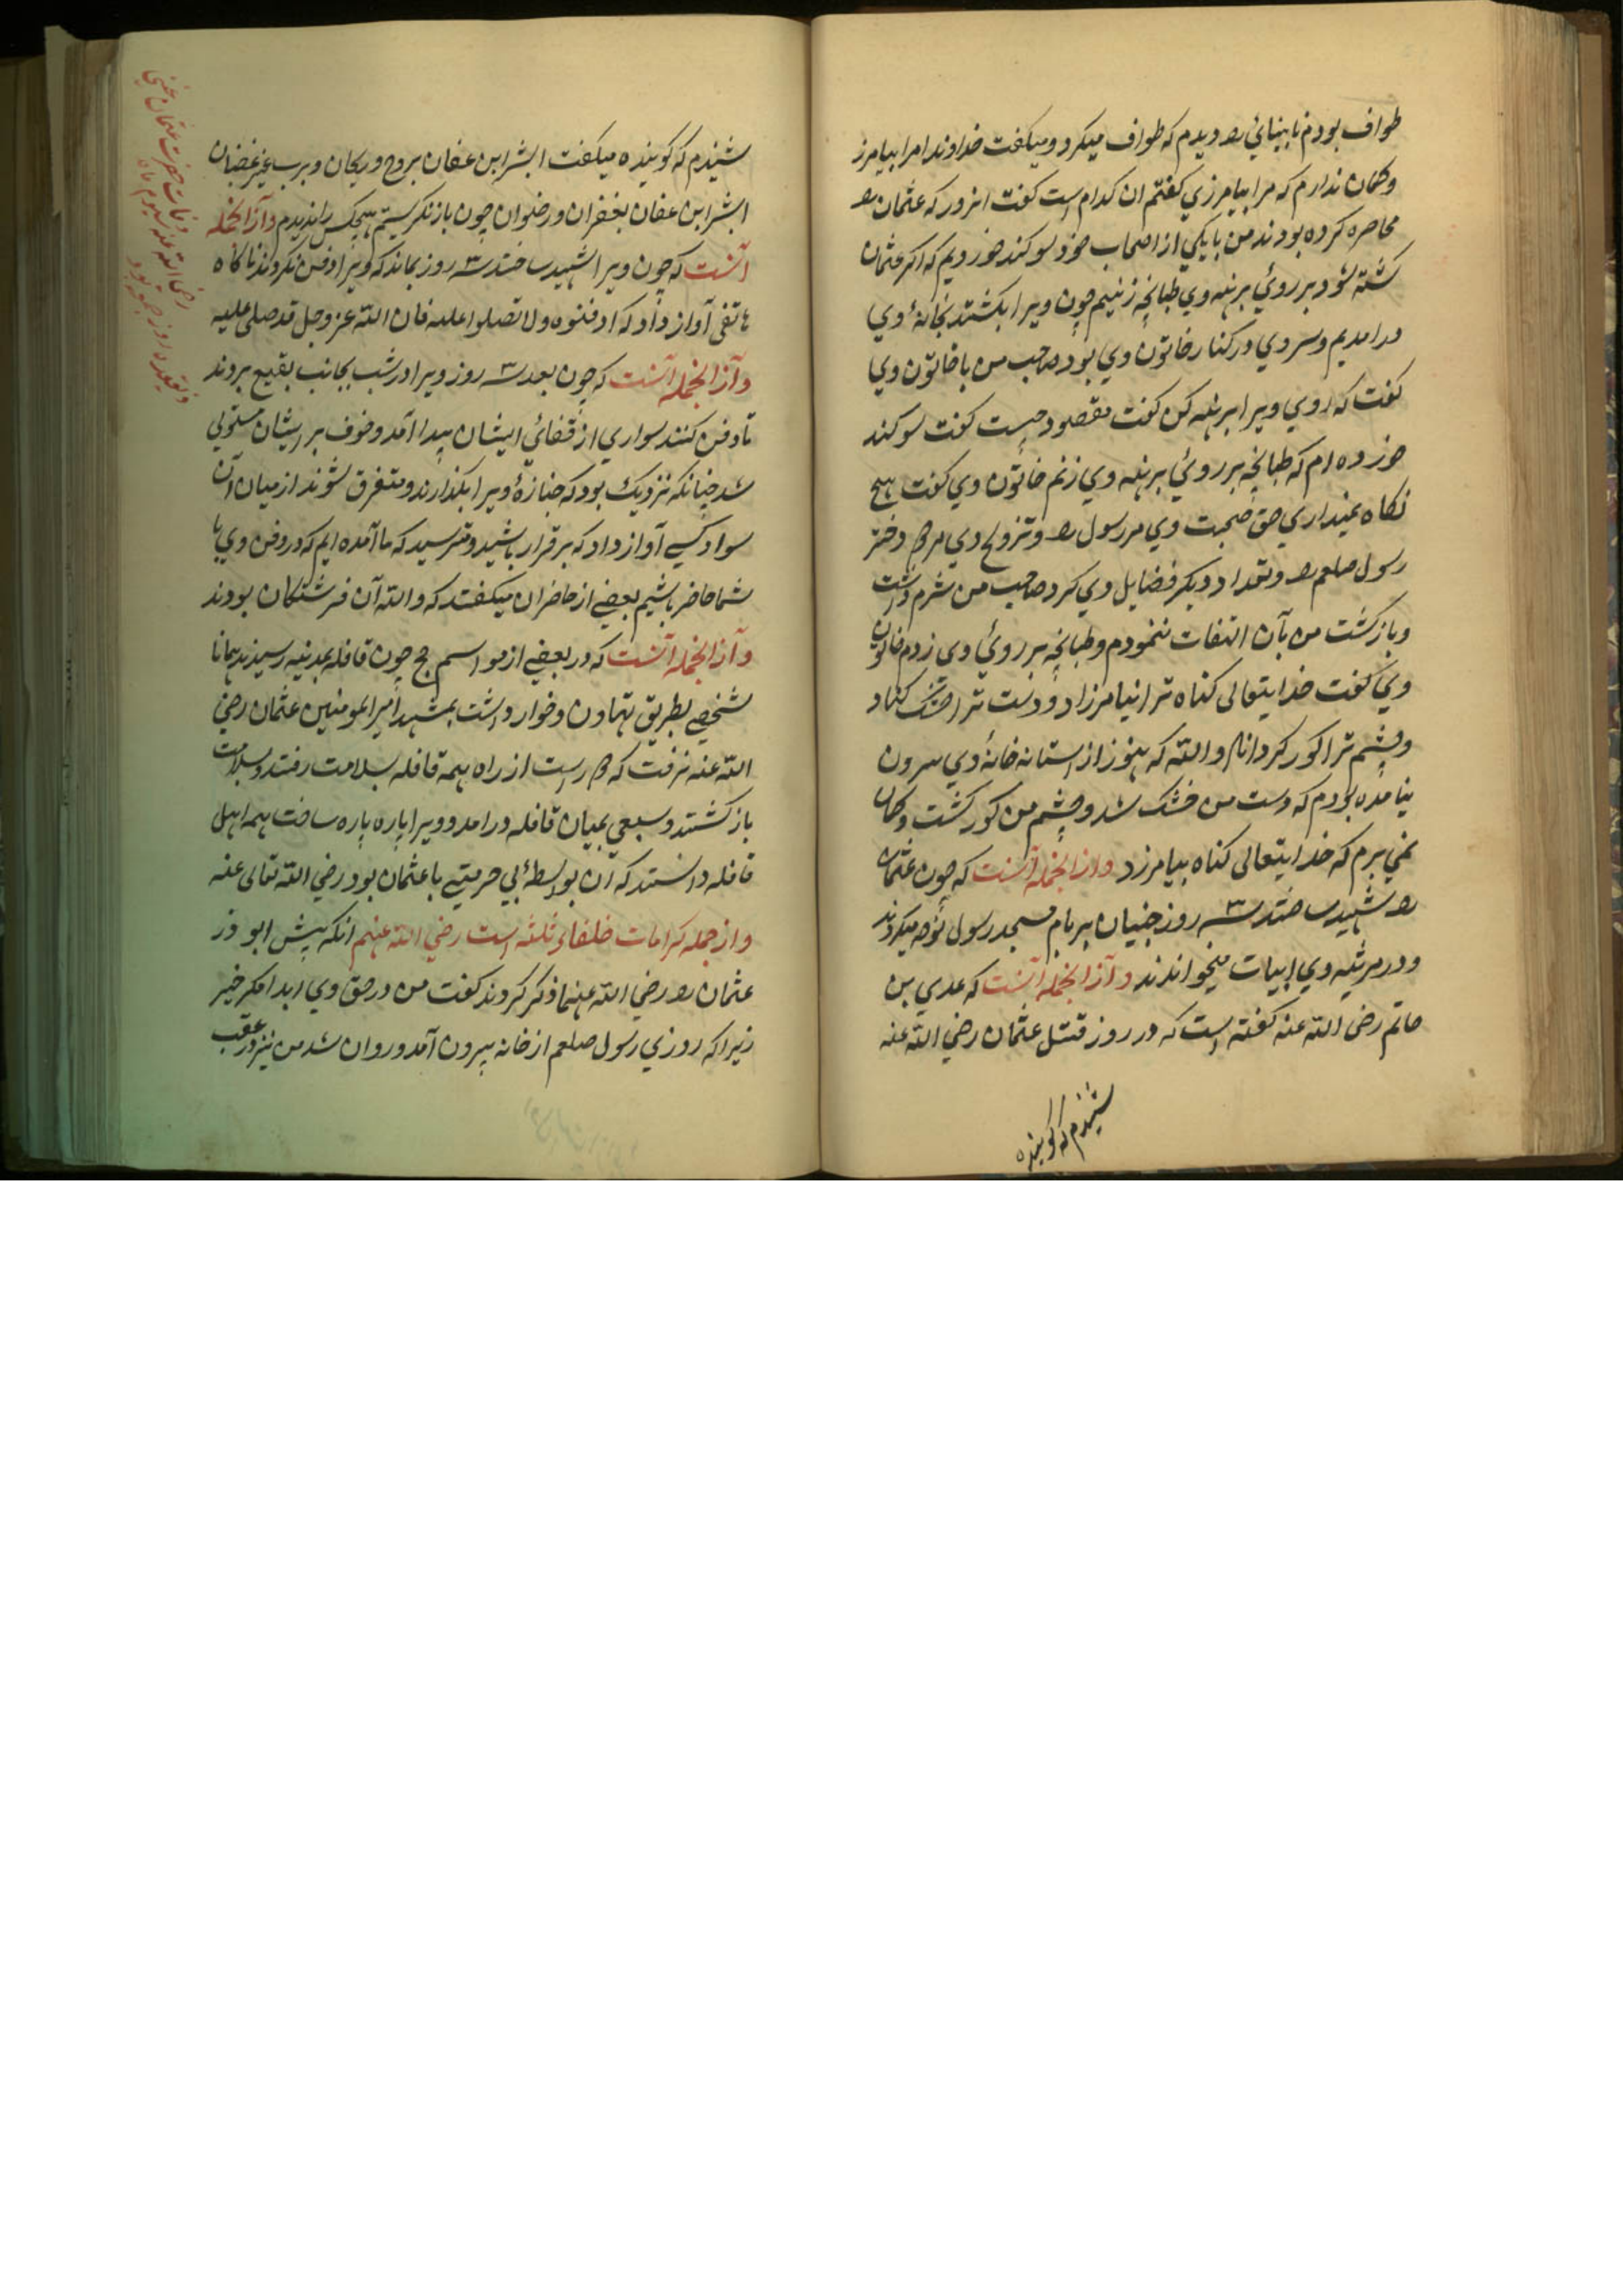 طواف بودم نابینائی را دیدم که طواف میکرد ومیکفت خداوندا مرا بیامرز
وکمان ندارم که مرا بیامرزي کفتم ان کدام است کفت انروز که عثمان را
محاصره کرده بودند من بایکي از اصحاب خود سوکند خوردیم که اکر عثمان
کشته شود بر روئي برهنه وي طبانچه زنیم چون ویرا بکشتند بخانۀ وي
درامدیم وسر وي در کنار خاتون وي بود صاحب من با خاتون وي
کفت که روي ویرا برهنه کن کفت مقصود چیست کفت سوکند
خورده ام که طبانچه بر روئي برهنه وي زنم خاتون وي کفت هیچ
نکاه نمیداري حق صحبت وي مر رسول را وتزوج وي مر دو دختر
رسول صلعم را وتعداد دیکر فضایل وي کرد صاحب من شرم داشت
وبازکشت من بآن التفات ننمودم وطبانچه بر روئي وي زدم خاتون
وي کفت خدایتعالی کناه ترا نیامرزاد ودست ترا خشک کناد
وچشم ترا کور کرداناد والله که هنوز از استانه خانۀ وي بیرون
نیامده بودم که دست من خشک شد وچشم من کور کشت وکمان
نمي برم که خدایتعالی کناه بیامرزد وازانجمله آنست که چون عثمان
را شهید ساختند سه روز جنیان بر بام مسجد رسول نوحه میکردند
ودر مرثیه وي ابیات میخواندند وآزانجمله آنست که عدي بن
حاتم رضی الله عنه کفته است که در روز قتل عثمان رضي الله عنه
شنیدم که کوینده
شنیدم که کوینده میکفت ابشر ابن عفان بروح وریحان وبرب غیر غضبان
ابشر ابن عفان بغفران ورضوان چون بازنکریستم هیچکس را ندیدم وآزانجمله
آنست که چون ویرا شهید ساختند سه روز بماند که ویرا دفن نکردند ناکاه
هاتفی آواز داد که ادفنوه ولا تصلوا علیه فان الله عز وجل قد صلی علیه
وآزانجمله آنست که چون بعد سه روز ویرا در شب بجانب بقیع بردند
تا دفن کنند سواري از قفائي ایشان پیدا آمد وخوف بر ایشان مستولي
شد چنانکه نزدیک بود که جنازۀ ویرا بکذارند ومتفرق شوند از میان آن
سواد کسي آواز داد که برقرار باشید ومترسید که ما آمده ایم که در دفن وي با
شما حاضر باشیم بعضي از حاضران میکفتند که والله آن فرشتکان بودند
وآزانجمله آنست که در بعضي از مواسم حج چون قافله بمدینه رسیدند همانا
شخصي بطریق تهاون وخوار داشت بمشهد امیر المومنین عثمان رضي
الله عنه نرفت که دور است از راه همه قافله بسلامت رفتند وبسلامت
بازکشتند وسبعي بمیان قافله درامد وویرا پاره پاره ساخت همه اهل
قافله دانستند که آن بواسطۀ بي حرمتي با عثمان بود رضي الله تعالی عنه
وازجمله کرامات خلفاء ثلثه است رضي الله عنهم انکه پیش ابو ذر
عثمان را رضي الله عنهما ذکر کردند کفت من در حق وي ابدا مکر خیر
زیراکه روزي رسول صلعم از خانه بیرون آمد وروان شد من نیز در عقب
وفات حضرت عثمان غني
رضی الله عنه سیوم ماه
ذیقعده روز جمعه بود